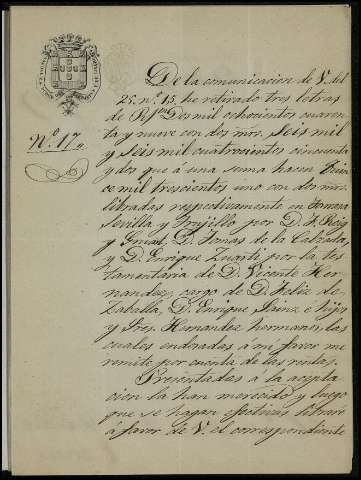 De la comunicacion de V. del
25. nº 15, he retirado tres letras
de Rsvn Dos mil ochocientos cuaren
ta y nueve con dos mrs. Seis mil
Nº 17.
y Seis mil cuatrocientos cincuenta
y dos que á una suma hacen Quin
ce mil trescientos uno con dos mrs
libradas respectivamente en Zamora
Sevilla y Trujillo por D. J. Roig
y D. Tomas de la Calzada,
y D. Enrique por la tes
tamentaria de D. Vicente Her
nandez, cargo de D. Felix de
Zaballa, D. Enrique Sainz é hijos
y Sres. Hernandez hermanos, las
cuales endosadas á mi favor me
remite por cuenta de las rentas.
Presentadas á la acepta
cion la han merecido y luego
que se hagan efectivas libraré
á favor de V. el correspondiente